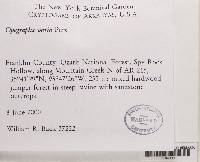 The New York Botanical Garden
CRYPTOGAMS OF ARKANSAS, U.S.A.
Opegrapha varia Pers.
Franklin County: Ozark National Forest, Spy Rock
Hollow, along Mountain Creek N of AR 215,
mixed hardwood
juniper forest in steep ravine with sandstone
outcrops
8 June 2000
William R. Buck 37222